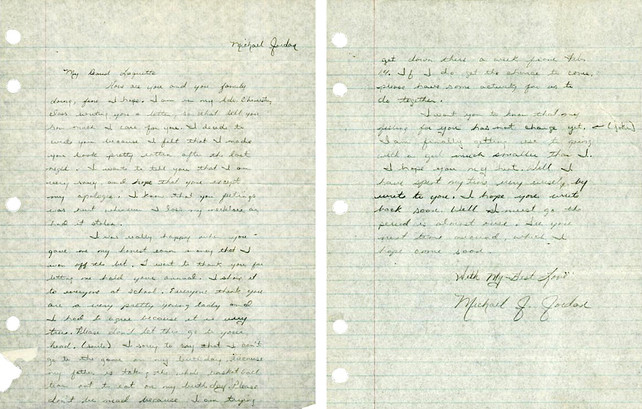 Michael Jordan
My Dearest Laquette
How are you and you family
doing, fine I hope. I am in my Adv. Chemistry
class writing you a letter, so that tell you
how much I care for you. I decide to
write you because I felt that I made
you look pretty rotten after the last
night. I want to tell you that I am
very sorry and hope that you accept
my apologie. I know that you feelings
was hurt whenever I loss my necklace or
had it stolen.
I was really happy when you
gave me my honest earn money that I
won off the bet. I want to thank you for
letting me hold your annual. I show it
to everyone at school. Everyone think you
are a very pretty young lady and I
had to agree because it is very
true. Please don't let this go to your
head. (smile) I sorry to say that I can't
go to the game on my birthday because
my father is taking the whole basketball
team out to eat on my birthday. Please
don't be mad because I am trying
get down there a week from Feb.
14. If I do get the chance to come,
please have some activity for us to
do together.
I want you to know that my
feeling for you has not change yet. (joke)
I am finally gitten use to going
with a girl much smaller than I.
I hope you my Well I
have spent my time very wisely by
write to you. I hope you write
back soon. Well I must go the
period is almost over. See you
next time around, which I
hope come soon.
With My Best Love
Michael J. Jordan